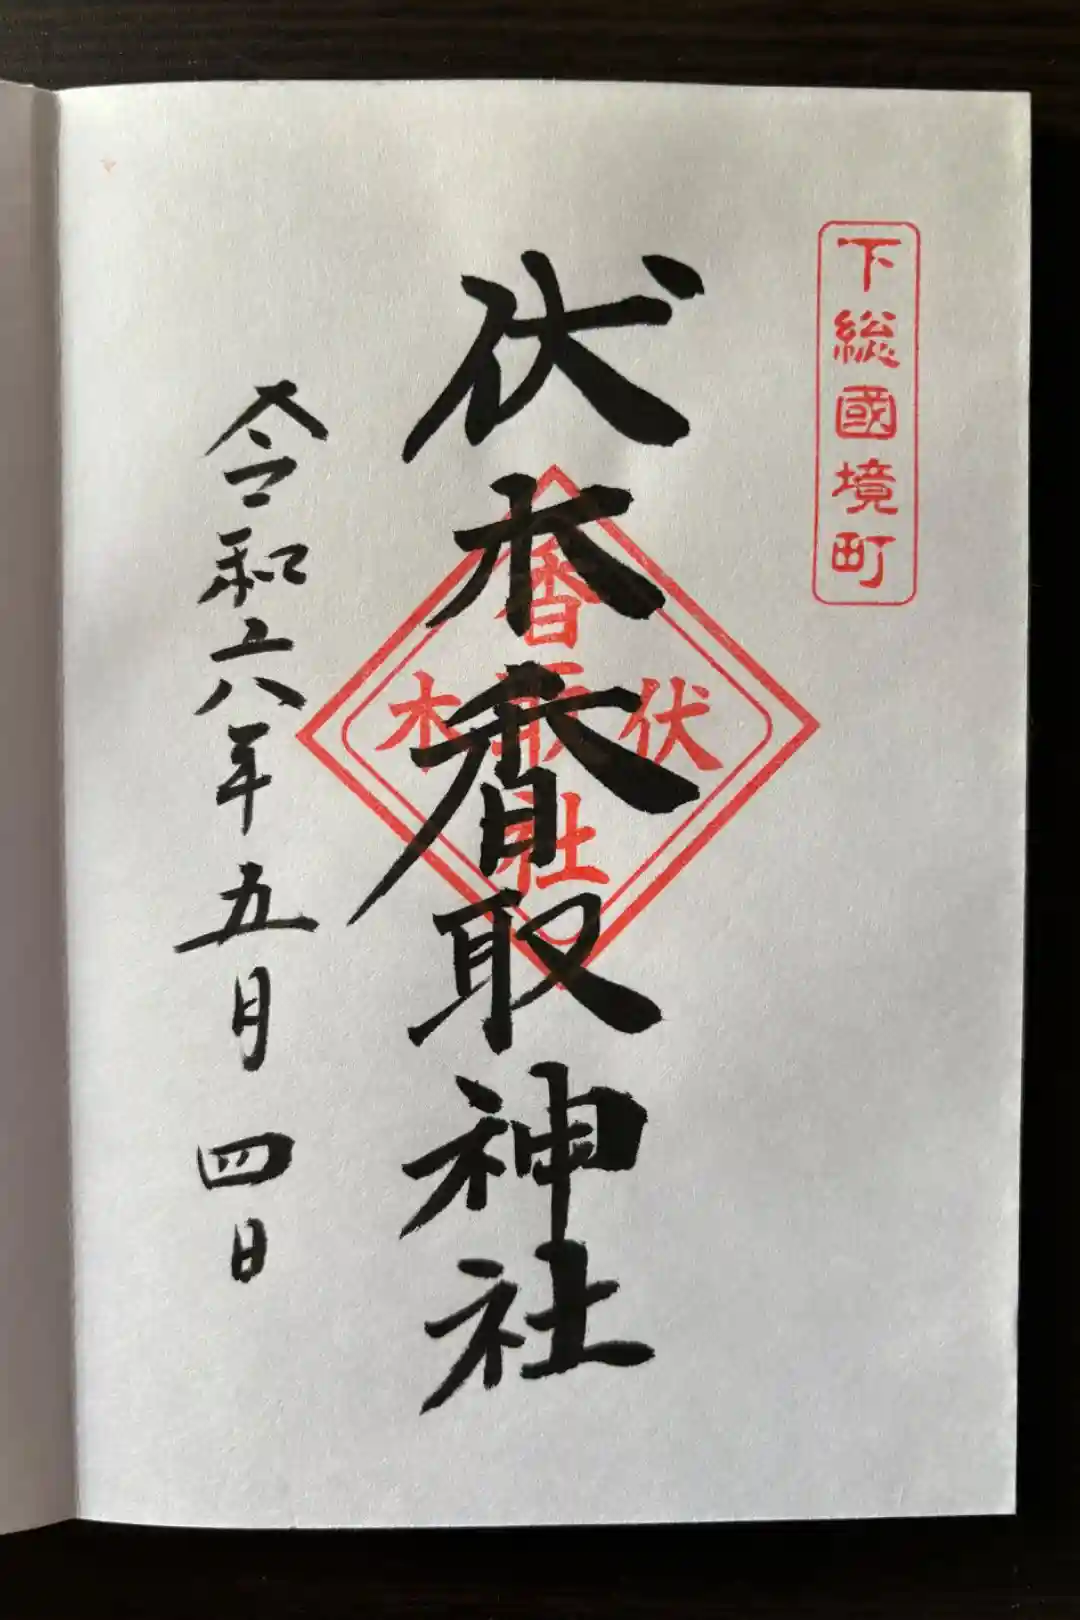 下総國境町
伏木香取神社
伏木
香取社
令和六年五月四日